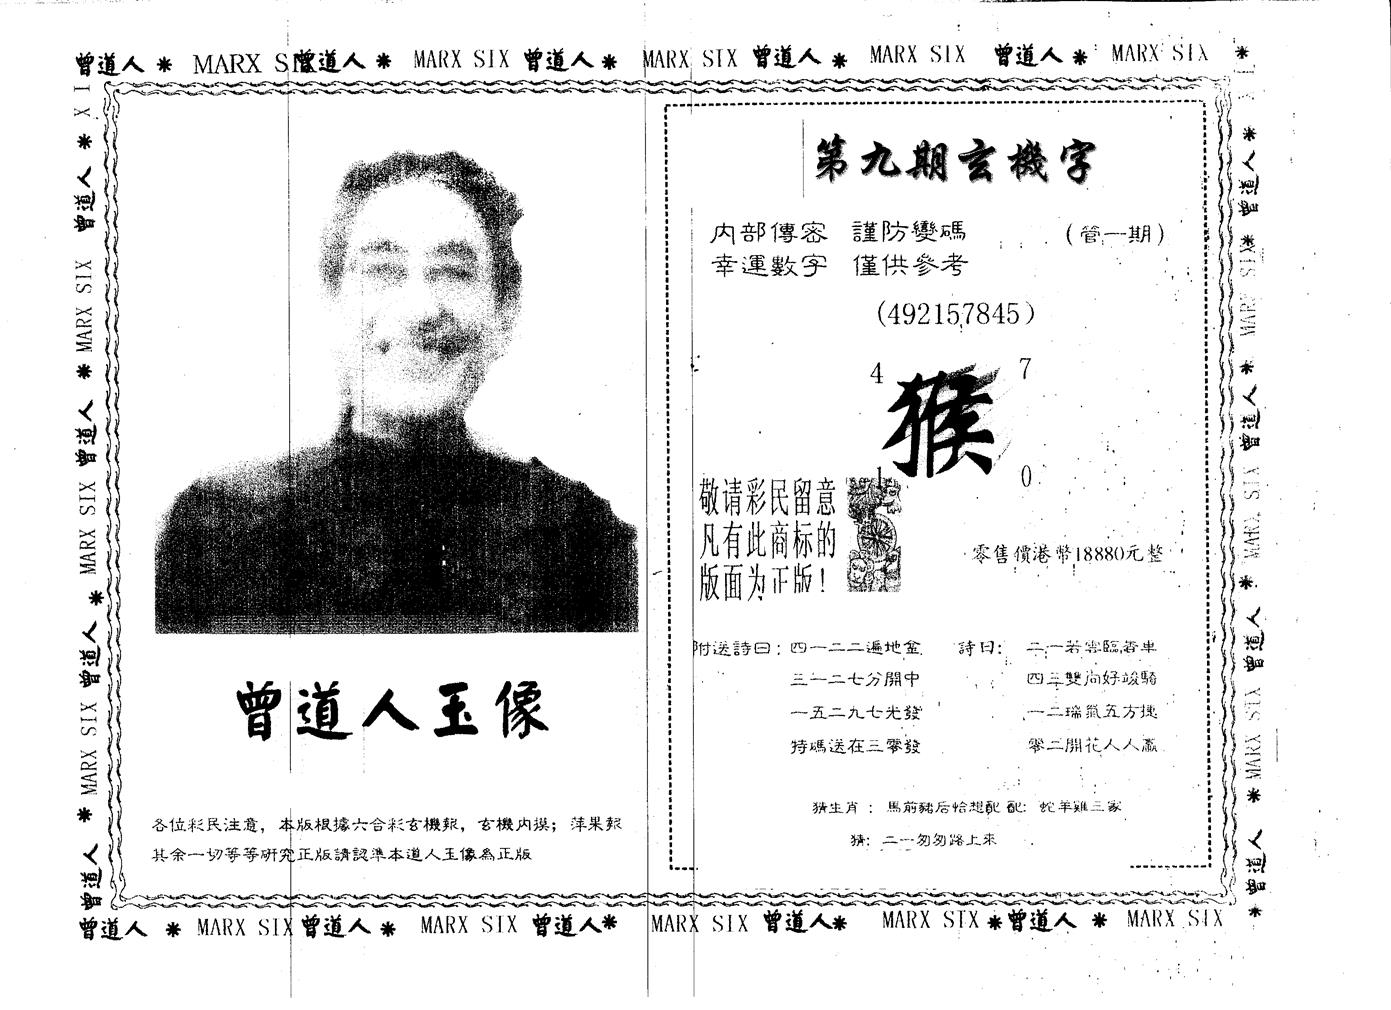 曾道人 * MARX SIX 曾道人 * MARX SIX 曾道人 * MARX SIX 曾道人 * MARX SIX 曾道人 * MARX SIX *
曾道人 * MARX SIX 曾道人 * MARX SIX 曾道人 * MARX SIX 曾道人 *
曾道人玉像
各位彩民注意，本版根據六合彩玄機報，玄機內摸；萍果報
其余一切等等研究正版請認準本道人玉像為正版
第九期玄機字
內部傳密 謹防變碼 （管一期）
幸運數字 僅供參考
（492157845）
4 7
猴
1 0
敬请彩民留意
凡有此商标的
版面为正版！
零售價港幣18880元整
附送詩曰：四一二二遍地金 詩曰： 二一若雲臨香車
三一二七分開中 四三雙尚好竣騎
一五二九七光發 一二瑞氣五方捷
特碼送在三零發 零二開花人人贏
猜生肖： 馬前豬后恰想配 配： 蛇羊雞三家
猜： 二一匆匆路上來
曾道人 * MARX SIX 曾道人 * MARX SIX 曾道人 * MARX SIX 曾道人 * MARX SIX *
曾道人 * MARX SIX 曾道人 * MARX SIX 曾道人 * MARX SIX 曾道人 * MARX SIX * 曾道人 * MARX SIX